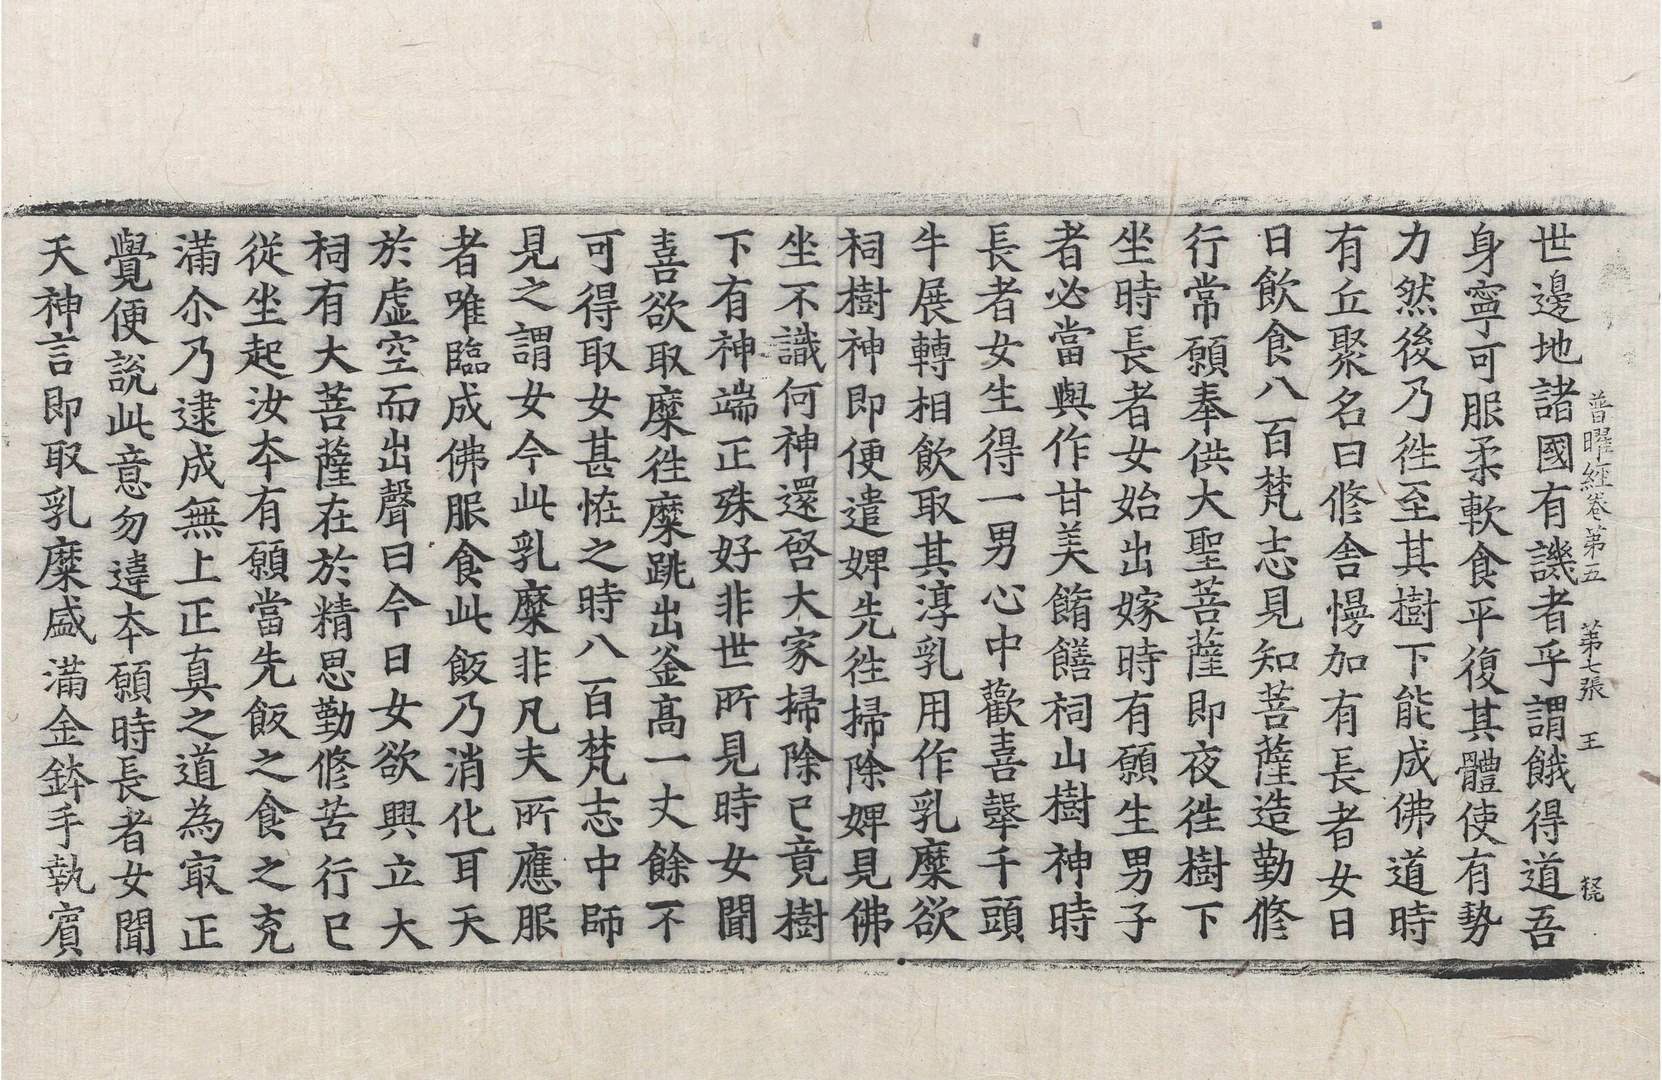 普曜經卷第五　第七張　王
世邊地諸國有譏者乎謂餓得道吾
身寧可服柔軟食平復其體使有勢
力然後乃徃至其樹下能成佛道時
有丘聚名曰修舍慢加有長者女日
日飲食八百梵志見知菩薩造勤修
行常願奉供大聖菩薩即夜徃樹下
坐時長者女始出嫁時有願生男子
者必當與作甘美餚饍祠山樹神時
長者女生得一男心中歡喜犎千頭
牛展轉相飲取其淳乳用作乳糜欲
祠樹神即便遣婢先徃掃除婢見佛
坐不識何神還啓大家掃除已竟樹
下有神端正殊好非世所見時女聞
喜欲取糜徃糜跳出釜高一丈餘不
可得取女甚恠之時八百梵志中師
見之謂女今此乳糜非凡夫所應服
者唯臨成佛服食此飯乃消化耳天
於虛空而出聲曰今日女欲興立大
祠有大菩薩在於精思勤修苦行已
從坐起汝夲有願當先飯之食之充
滿尒乃逮成無上正真之道為㝡正
覺便說此意勿違夲願時長者女聞
天神言即取乳糜盛滿金鉢手執賔